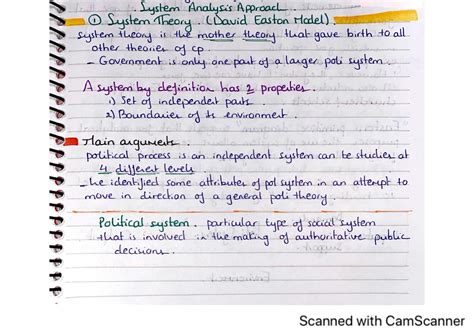 System Analysis Approach.
① System Theory. (David Easton Model).
System theory is the mother theory that gave birth to all
other theories of cp.
- Government is only one part of a larger poli system.
A system by definition has 2 properties.
1) Set of independent parts.
2) Boundaries of its environment.
Main arguments.
political process is an independent system can be studied at
4 different levels
- he identified some attributes of pol system in an attempt to
move in direction of a general poli theory.
Political system. particular type of social system
that is involved in the making of authoritative public
decisions.
Scanned with CamScanner